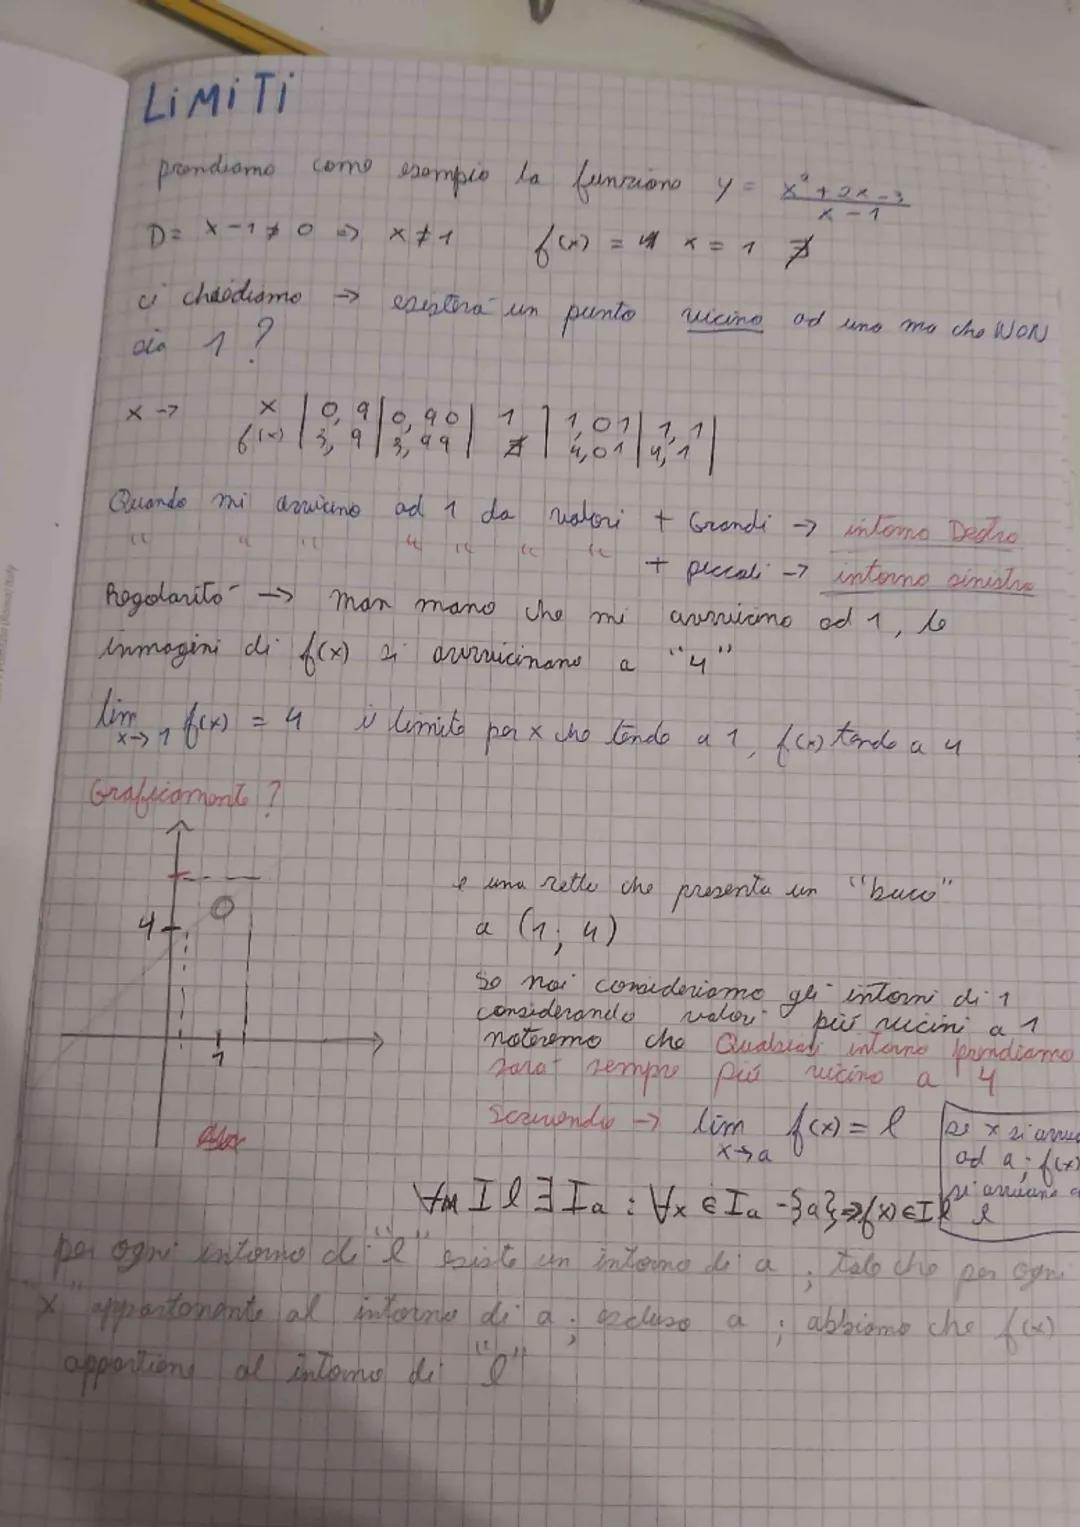 LiMiTi
prendiamo come esempio la funzione y = x²+2x-3 / x-1
D= x-1≠0 => x≠1 f(x) = x=1 ∄
ci chiediamo → esisterà un punto vicino ad uno ma che NON
sia 1?
x → x | 0,9 | 0,90 | 1 | 1,01 | 1,1 |
f(x) | 3,9 | 3,99 | ∄ | 4,01 | 4,1 |
Quando mi avvicino ad 1 da valori + Grandi → intorno Destro
" " " " " " " + piccoli → intorno sinistro
Regolarità → man mano che mi avvicino ad 1, le
immagini di f(x) si avvicinano a "4"
lim x→1 f(x) = 4 il limite per x che tende a 1, f(x) tende a 4
Graficamente?
4
1
è una retta che presenta un "buco"
a (1; 4)
se noi consideriamo gli intorni di 1
considerando valori più vicini a 1
noteremo che Qualsiasi intorno prendiamo
sarà sempre più vicino a 4
Scrivendo → lim x→a f(x) = l
se x si avvic
ad a; f(x)
si avvicina a
l
∀ I l ∃ Ia : ∀x ∈ Ia -{a} => f(x) ∈ Il
per ogni intorno di "l" esiste un intorno di a, tale che per ogni
"x" appartenente al intorno di a; escluso a; abbiamo che f(x)
appartiene al intorno di "l"